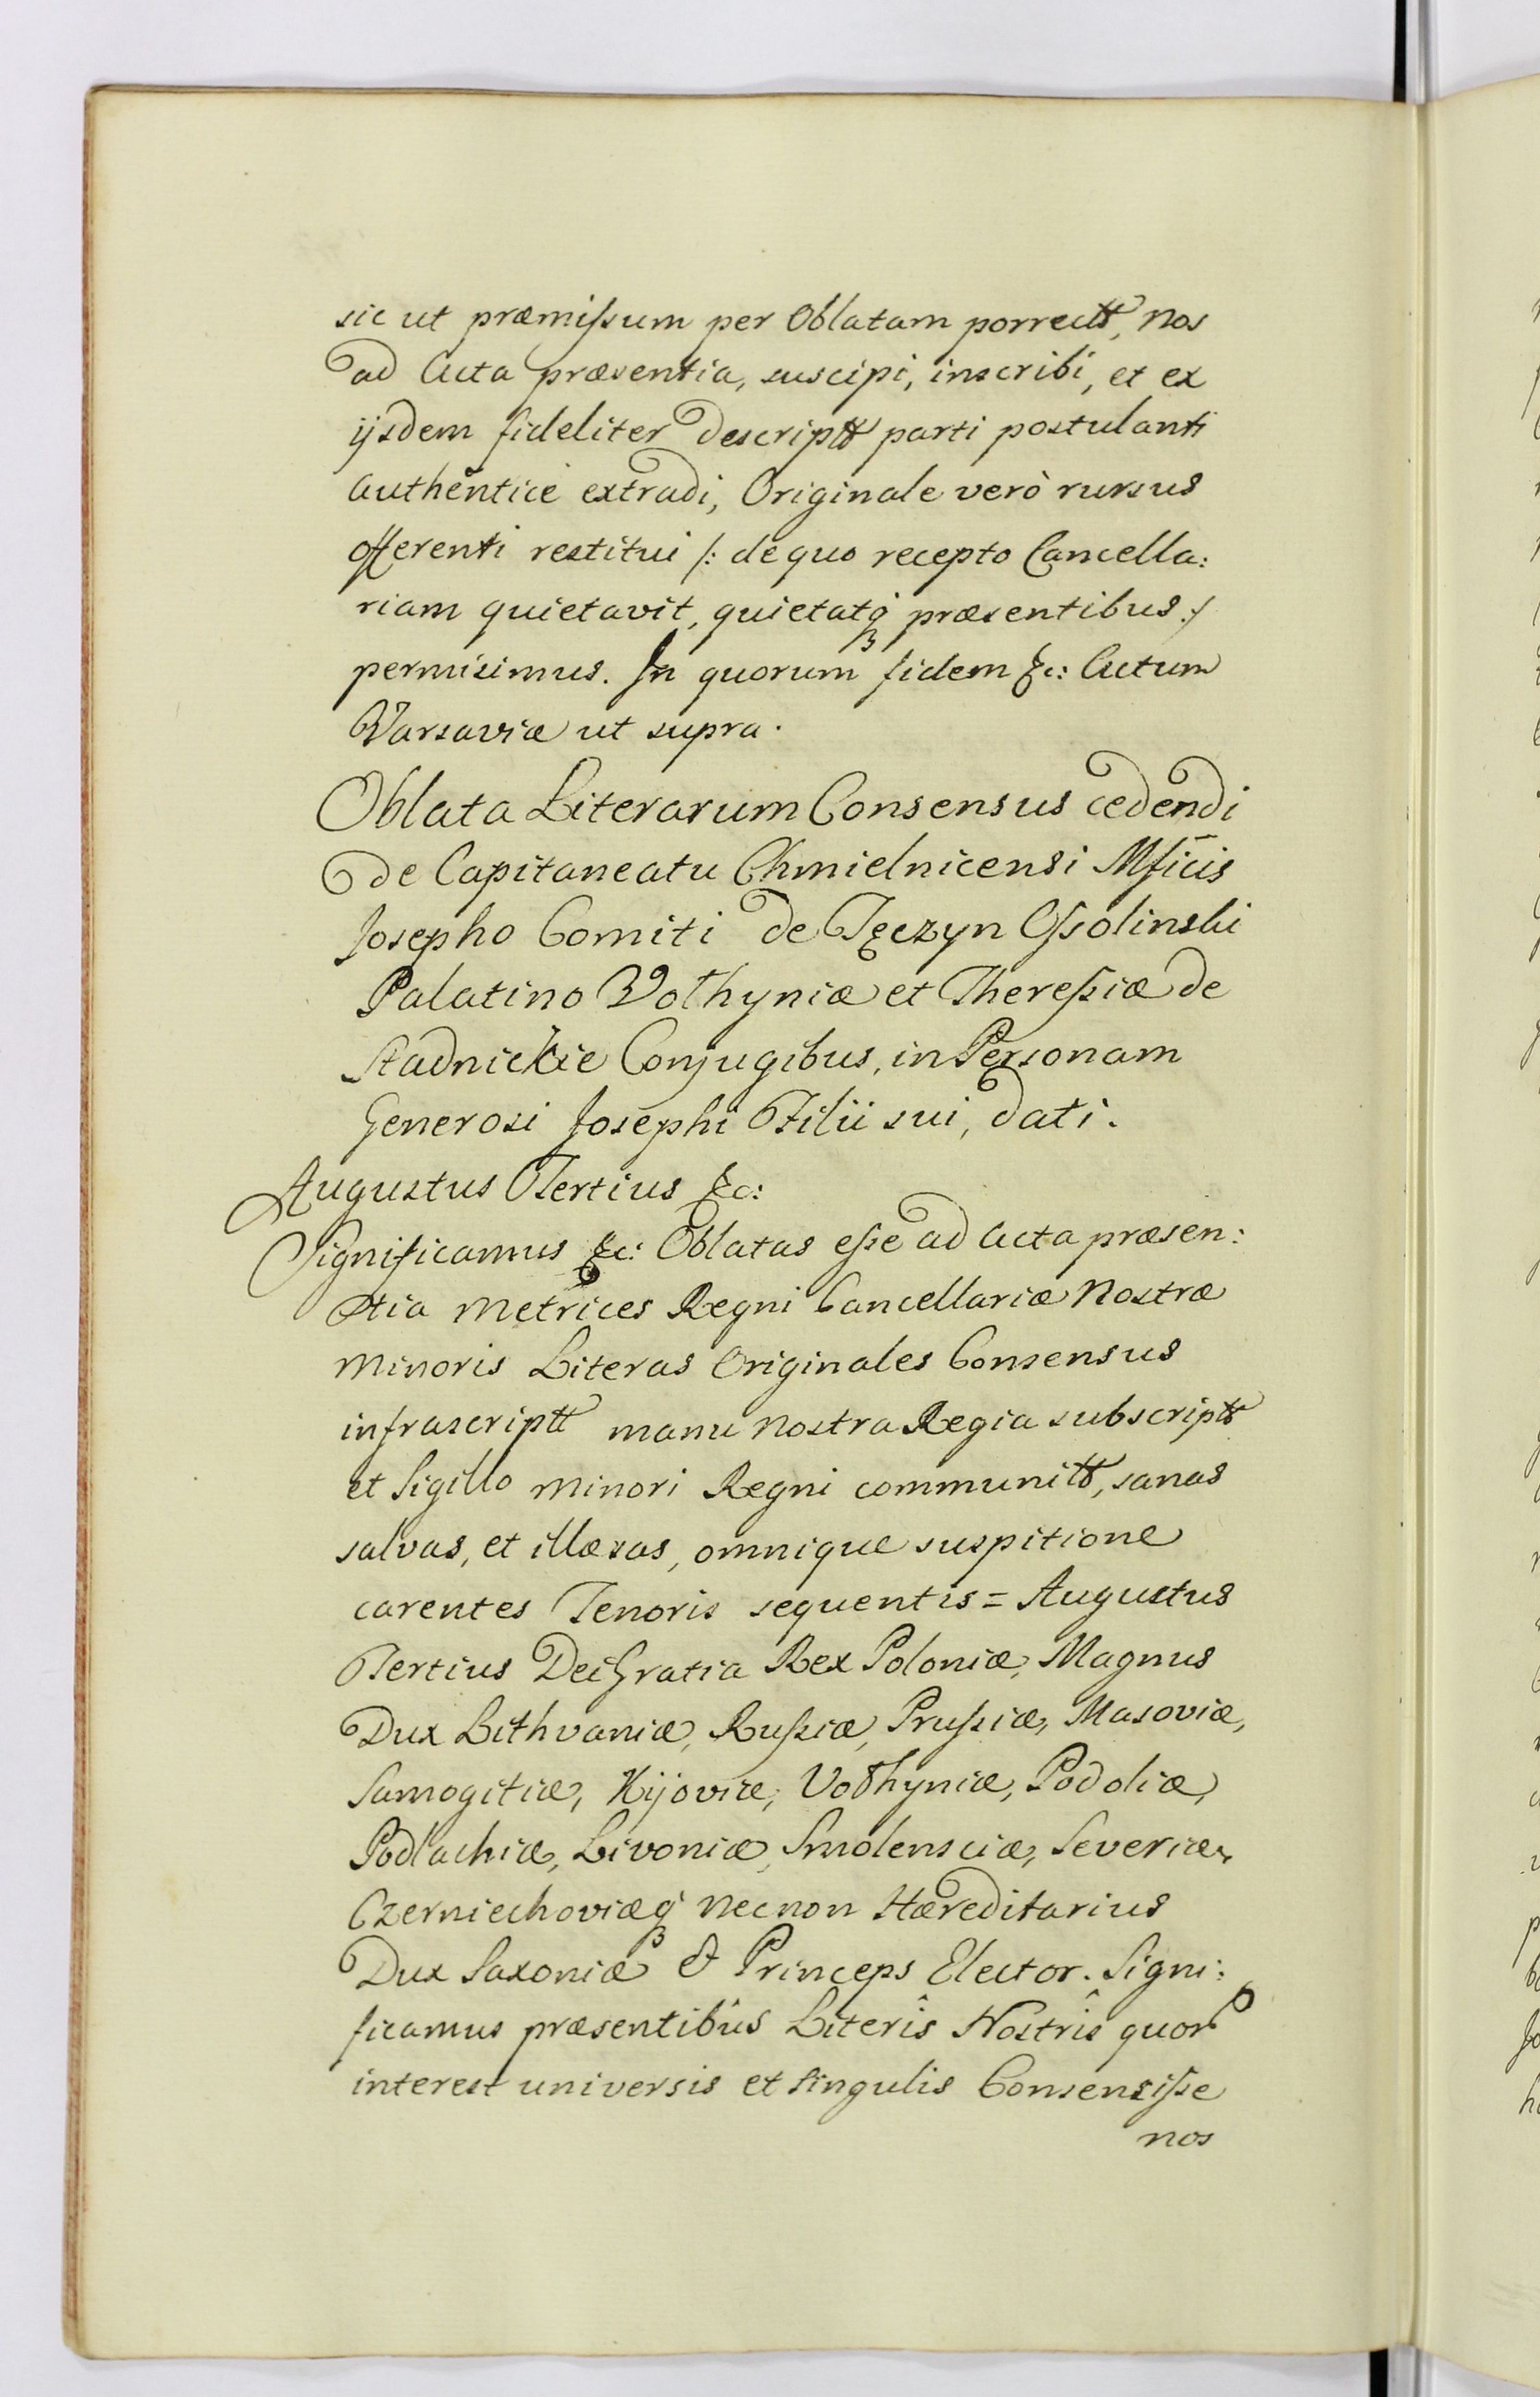 sic ut præmissum per Oblatam porrectt, nos
ad Acta præsentia, suscipi, inscribi, et ex
ijsdem fideliter descriptt parti postulanti
authenticè extradi, Originale verò rursus
offerenti restitui /: de quo recepto Cancella:
riam quietavit, quietatq præsentibus :/
permisimus. In quorum fidem &c: Actum
Varsaviæ ut supra.
Oblata Literarum Consensus cedendi
de Capitaneatu Chmielnicensi Mficis
Josepho Comiti de Tęczyn Ossolinski
Palatino Volhyniæ et Theressiæ de
Stadnickie Conjugibus, in Personam
Generosi Josephi Filii sui, dati.
Augustus Tertius &c:
Significamus &c: Oblatas esse ad Acta præsen:
tia Metrices Regni Cancellariæ Nostræ
Minoris Literas Originales Consensus
infrascriptt manu nostra Regia subscriptt
et Sigillo minori Regni communitt, sanas
salvas, et illæsas, omnique suspitione
carentes Tenoris sequentis = Augustus
Tertius Dei Gratia Rex Poloniæ, Magnus
Dux Lithvaniæ, Russiæ, Prussiæ, Masoviæ,
Samogitiæ, Kijoviæ, Volhyniæ, Podoliæ,
Podlachiæ, Livoniæ, Smolensciæ, Severiæ,
Czerniechoviæq necnon Hæreditarius
Dux Saxoniæ & Princeps Elector. Signi:
ficamus præsentibûs Literîs Nostrîs quor
interest universis et singulis Consensisse
nos